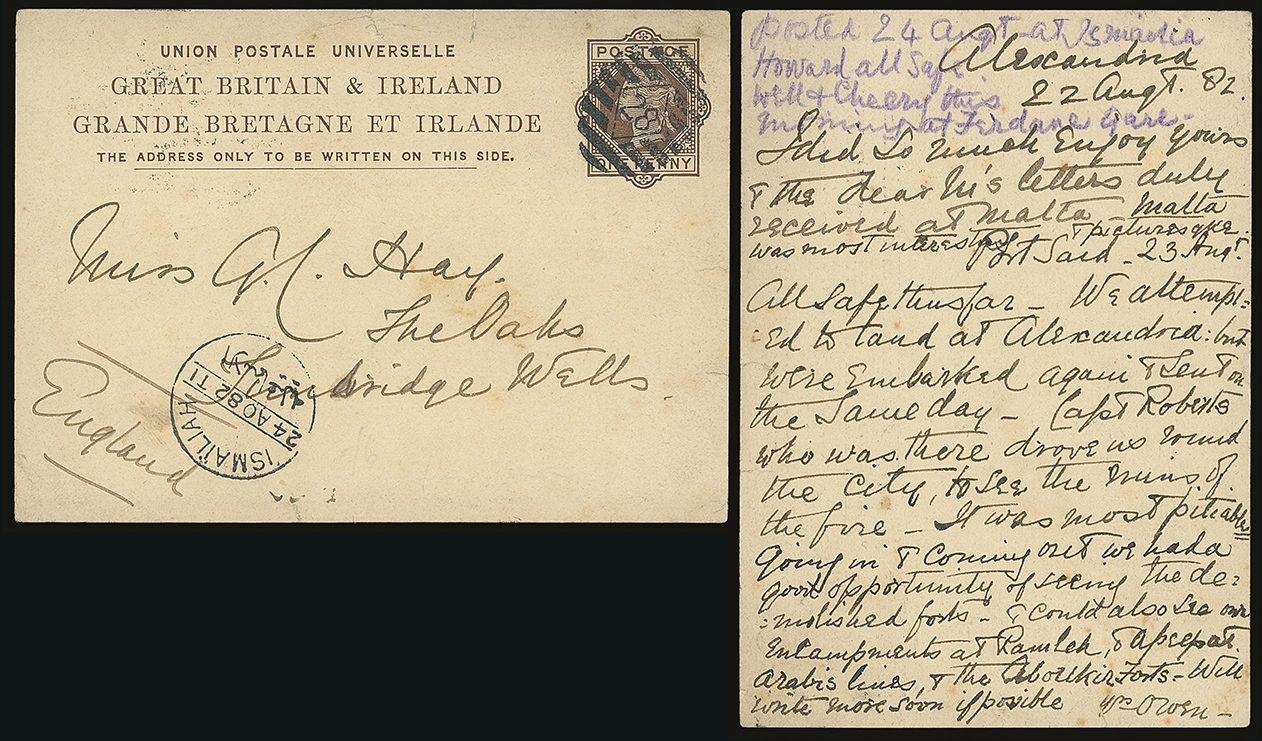 UNION POSTALE UNIVERSELLE
GREAT BRITAIN & IRELAND
GRANDE BRETAGNE ET IRLANDE
THE ADDRESS ONLY TO BE WRITTEN ON THIS SIDE.
POSTAGE
ONE PENNY
Miss G. C. Hay.
The Oaks
Tunbridge Wells
England
ISMAÏLIAH
24 AO 82 T1
الاسماعيلية
Posted 24 Augt at Ismailia
Howard all safe
well & Cheery this
morning at Ferdane Gare -
Alexandria
22 Augt. 82.
I did so much Enjoy yours
& the dear M's letters duly
received at Malta - Malta
was most interesting & picturesque.
Port Said - 23 Augt.
All Safe thus far - We attempt=
=ed to land at Alexandria: but
were Embarked again & sent on
the Same day - Capt Roberts
who was there drove us round
the City, to see the ruins of
the fire - It was most pitiable
going in & Coming out we had a
good opportunity of seeing the de=
=molished forts - & could also see our
Encampments at Ramleh, & apeep at
Arabis lines, & the Aboukir Forts - Will
write more soon if possible Owen -